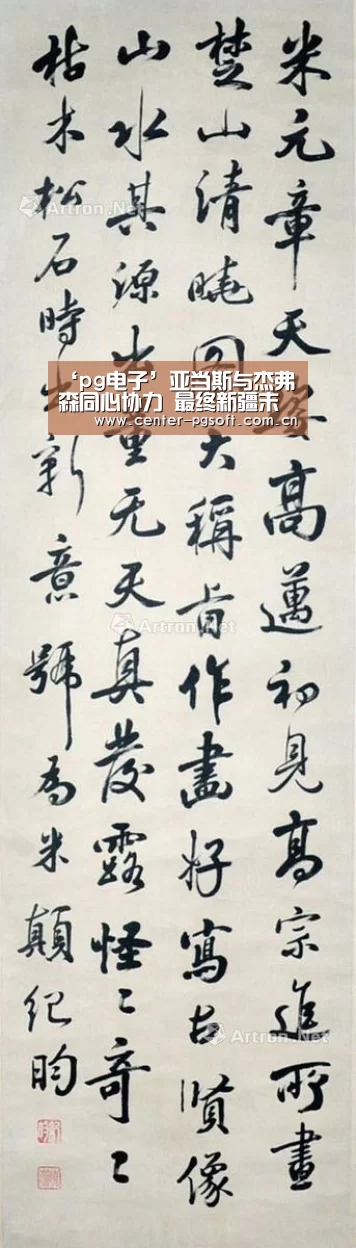 米元章天姿高邁初見高宗進所畫
楚山清曉図大稱旨作畫好寫古賢像
山水其源出董元天真發露怪々奇々
枯木松石時出新意號為米顛紀昀
‘pg电子’亚当斯与杰弗
森同心协力 最终新疆未
www.center-pgsoft.com.cn
Artron.Net
Artron.Net
Artron.Net
Artron.Net